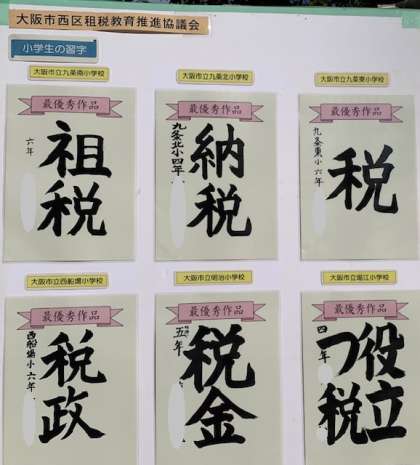 大阪市西区租税教育推進協議会
小学生の習字
大阪市立九条南小学校
最優秀作品
祖税
六年
大阪市立九条北小学校
最優秀作品
納税
九条北小四年
大阪市立九条東小学校
最優秀作品
税
九条東小六年
大阪市立西船場小学校
最優秀作品
税政
西船場小六年
大阪市立明治小学校
最優秀作品
税金
五年
大阪市立堀江小学校
最優秀作品
役立
つ税
四年